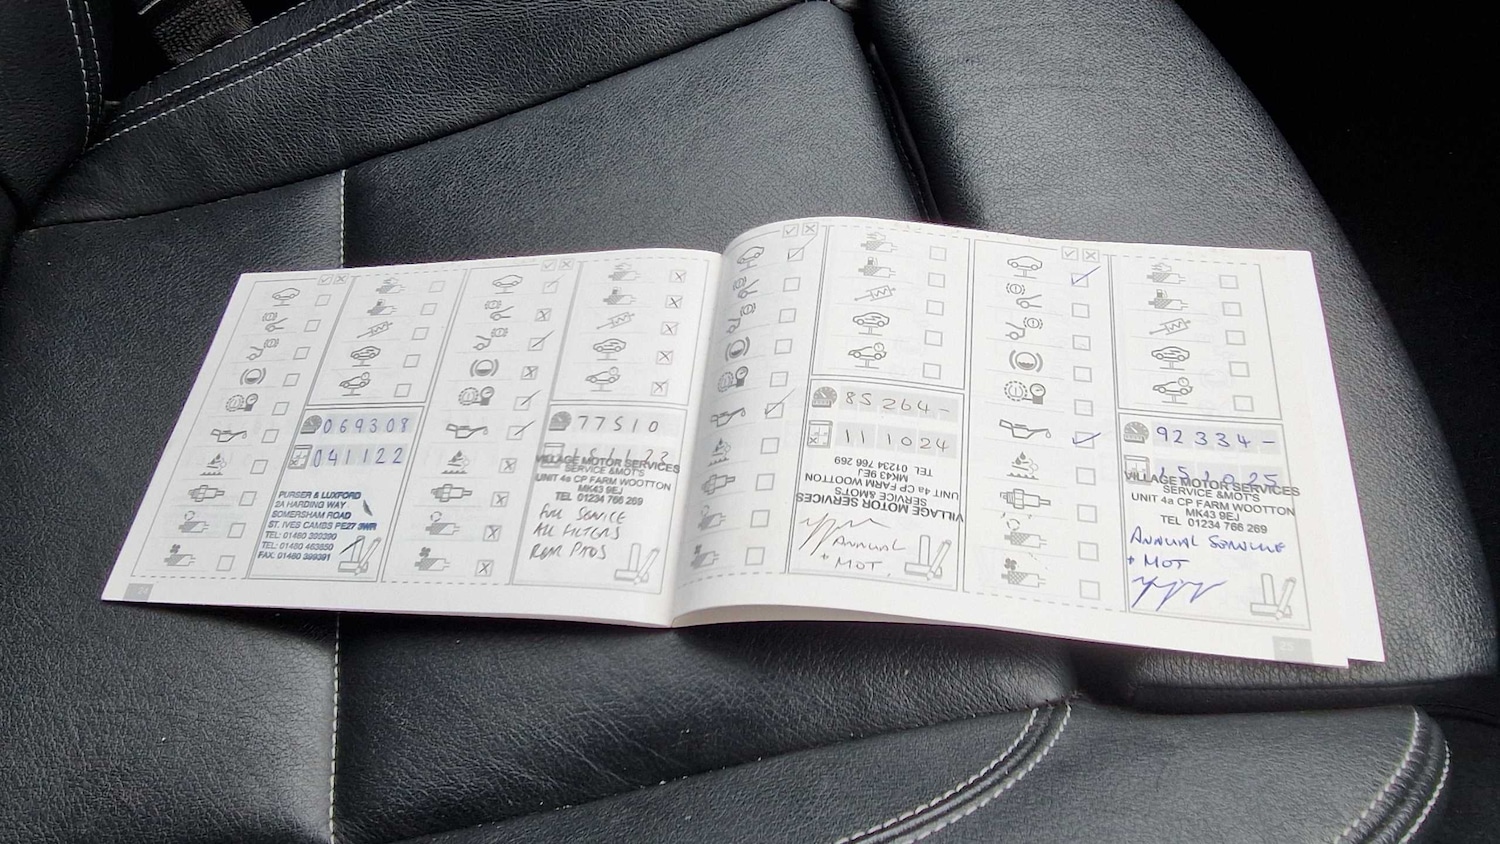 069308
041122
PURSER & LUXFORD
2A HARDING WAY
SOMERSHAM ROAD
ST. IVES CAMBS PE27 3WR
TEL: 01480
TEL: 01480 463850
FAX: 01480 399391
24
77510
VILLAGE MOTOR SERVICES
SERVICE & MOT'S
UNIT 4a CP FARM WOOTTON
MK43 9EJ
TEL 01234 766 269
FULL SERVICE
ALL FILTERS
85264-
111024
VILLAGE MOTOR SERVICES
SERVICE & MOT'S
UNIT 4a CP FARM WOOTTON
MK43 9EJ
TEL 01234 766 269
ANNUAL
+ MOT.
92334-
151025
VILLAGE MOTOR SERVICES
SERVICE & MOT'S
UNIT 4a CP FARM WOOTTON
MK43 9EJ
TEL 01234 766 269
ANNUAL SERVICE
+ MOT
25